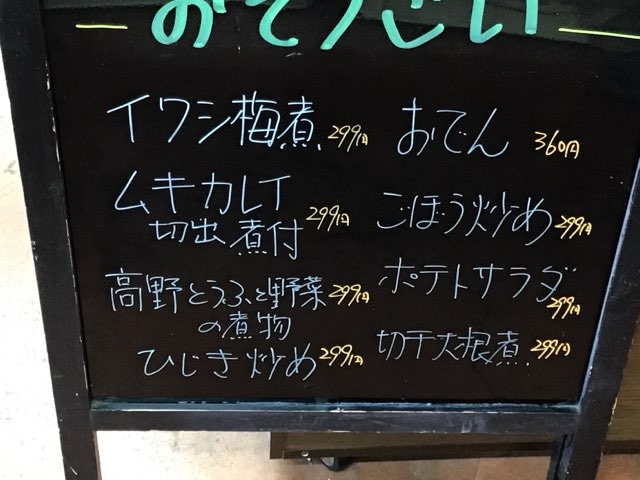 おそうざい
イワシ梅煮 299円
ムキカレイ
切出煮付 299円
高野とうふと野菜 299円
の煮物
ひじき炒め 299円
おでん 360円
ごぼう炒め 299円
ポテトサラダ
299円
切干大根煮 299円